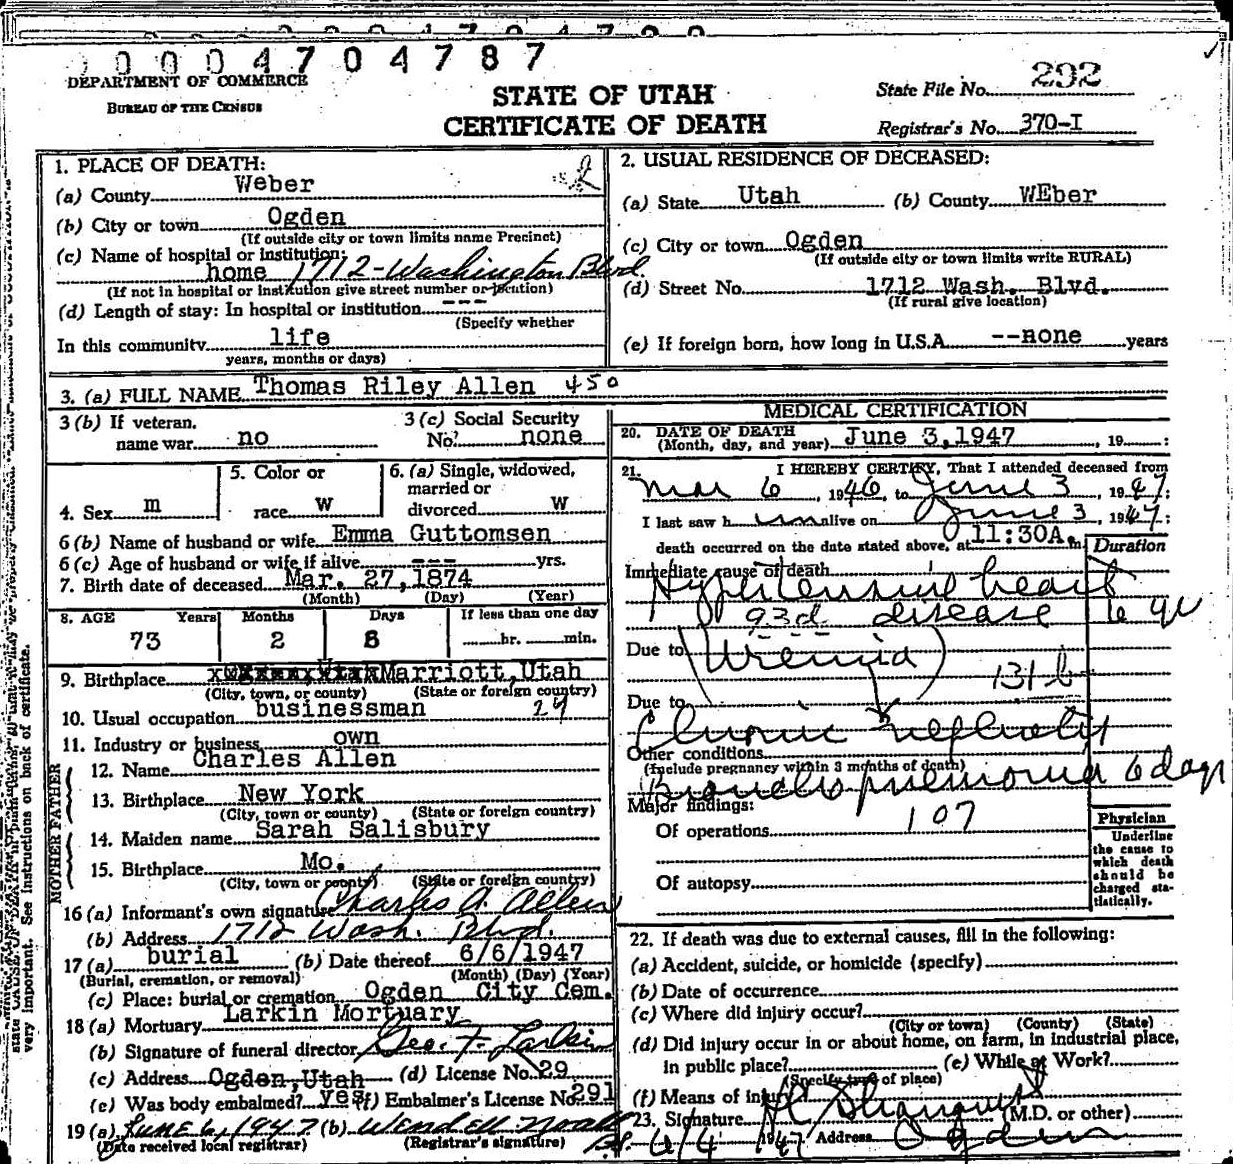 0 0 0 4 7 0 4 7 8 7
DEPARTMENT OF COMMERCE
BUREAU OF THE CENSUS
STATE OF UTAH
CERTIFICATE OF DEATH
State File No. 292
Registrar's No. 370-I
1. PLACE OF DEATH:
(a) County Weber
(b) City or town Ogden
(If outside city or town limits name Precinct)
(c) Name of hospital or institution:
home 1712-Washington Blvd.
(If not in hospital or institution give street number or location)
(d) Length of stay: In hospital or institution ---
(Specify whether
In this community life
years, months or days)
2. USUAL RESIDENCE OF DECEASED:
(a) State Utah (b) County WEber
(c) City or town Ogden
(If outside city or town limits write RURAL)
(d) Street No. 1712 Wash. Blvd.
(If rural give location)
(e) If foreign born, how long in U.S.A. --none years
3. (a) FULL NAME Thomas Riley Allen 450
3 (b) If veteran, name war no
3 (c) Social Security No. none
4. Sex m
5. Color or race W
6. (a) Single, widowed, married or divorced W
6 (b) Name of husband or wife Emma Guttomsen
6 (c) Age of husband or wife if alive --- yrs.
7. Birth date of deceased Mar. 27, 1874
(Month) (Day) (Year)
8. AGE Years Months Days If less than one day
73 2 6 hr. min.
9. Birthplace Marriott, Utah
(City, town, or county) (State or foreign country)
10. Usual occupation businessman 29
11. Industry or business own
FATHER
12. Name Charles Allen
13. Birthplace New York
(City, town or county) (State or foreign country)
MOTHER
14. Maiden name Sarah Salisbury
15. Birthplace Mo.
(City, town or county) (State or foreign country)
16 (a) Informant's own signature Charles A. Allen
(b) Address 1712 Wash. Blvd.
17 (a) burial (b) Date thereof 6/6/1947
(Burial, cremation, or removal) (Month) (Day) (Year)
(c) Place: burial or cremation Ogden City Cem.
18 (a) Mortuary Larkin Mortuary
(b) Signature of funeral director Geo. F. Larkin
(c) Address Ogden, Utah (d) License No. 29
(e) Was body embalmed? yes (f) Embalmer's License No. 291
19 (a) June 6, 1947 (b) Wendell
(Date received local registrar) (Registrar's signature)
MEDICAL CERTIFICATION
20. DATE OF DEATH
(Month, day, and year) June 3, 1947, 19 :
21. I HEREBY CERTIFY, That I attended deceased from
Mar 6, 1946, to June 3, 1947;
I last saw h im alive on June 3, 1947;
death occurred on the date stated above, at 11:30A. m.
Duration
Immediate cause of death
Hypertensive heart
93d disease 6 yr
Due to (Uremia)
131b
Due to
Chronic nephritis
Other conditions
(Include pregnancy within 3 months of death)
Broncho pneumonia 6 days
Major findings:
Of operations 107
Of autopsy
Physician
Underline
the cause to
which death
should be
charged sta-
tistically.
22. If death was due to external causes, fill in the following:
(a) Accident, suicide, or homicide (specify)
(b) Date of occurrence
(c) Where did injury occur?
(City or town) (County) (State)
(d) Did injury occur in or about home, on farm, in industrial place,
in public place? (e) While at Work?
(Specify type of place)
(f) Means of injury
23. Signature (M.D. or other)
6/4 1947 Address Ogden
state CAUSE OF DEATH
very important. See instructions on back of certificate.